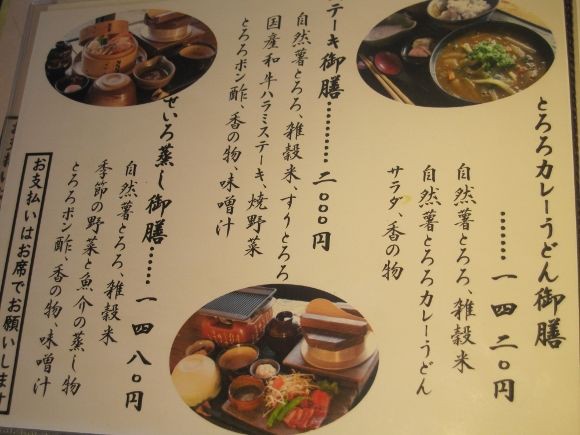 とろろカレーうどん御膳
……一四二〇円
自然薯とろろ、雑穀米
自然薯とろろカレーうどん
サラダ、香の物
テーキ御膳………二〇〇〇円
自然薯とろろ、雑穀米、すりとろろ
国産和牛ハラミステーキ、焼野菜
とろろポン酢、香の物、味噌汁
せいろ蒸し御膳……一四八〇円
自然薯とろろ、雑穀米
季節の野菜と魚介の蒸し物
とろろポン酢、香の物、味噌汁
お支払いはお席でお願いします